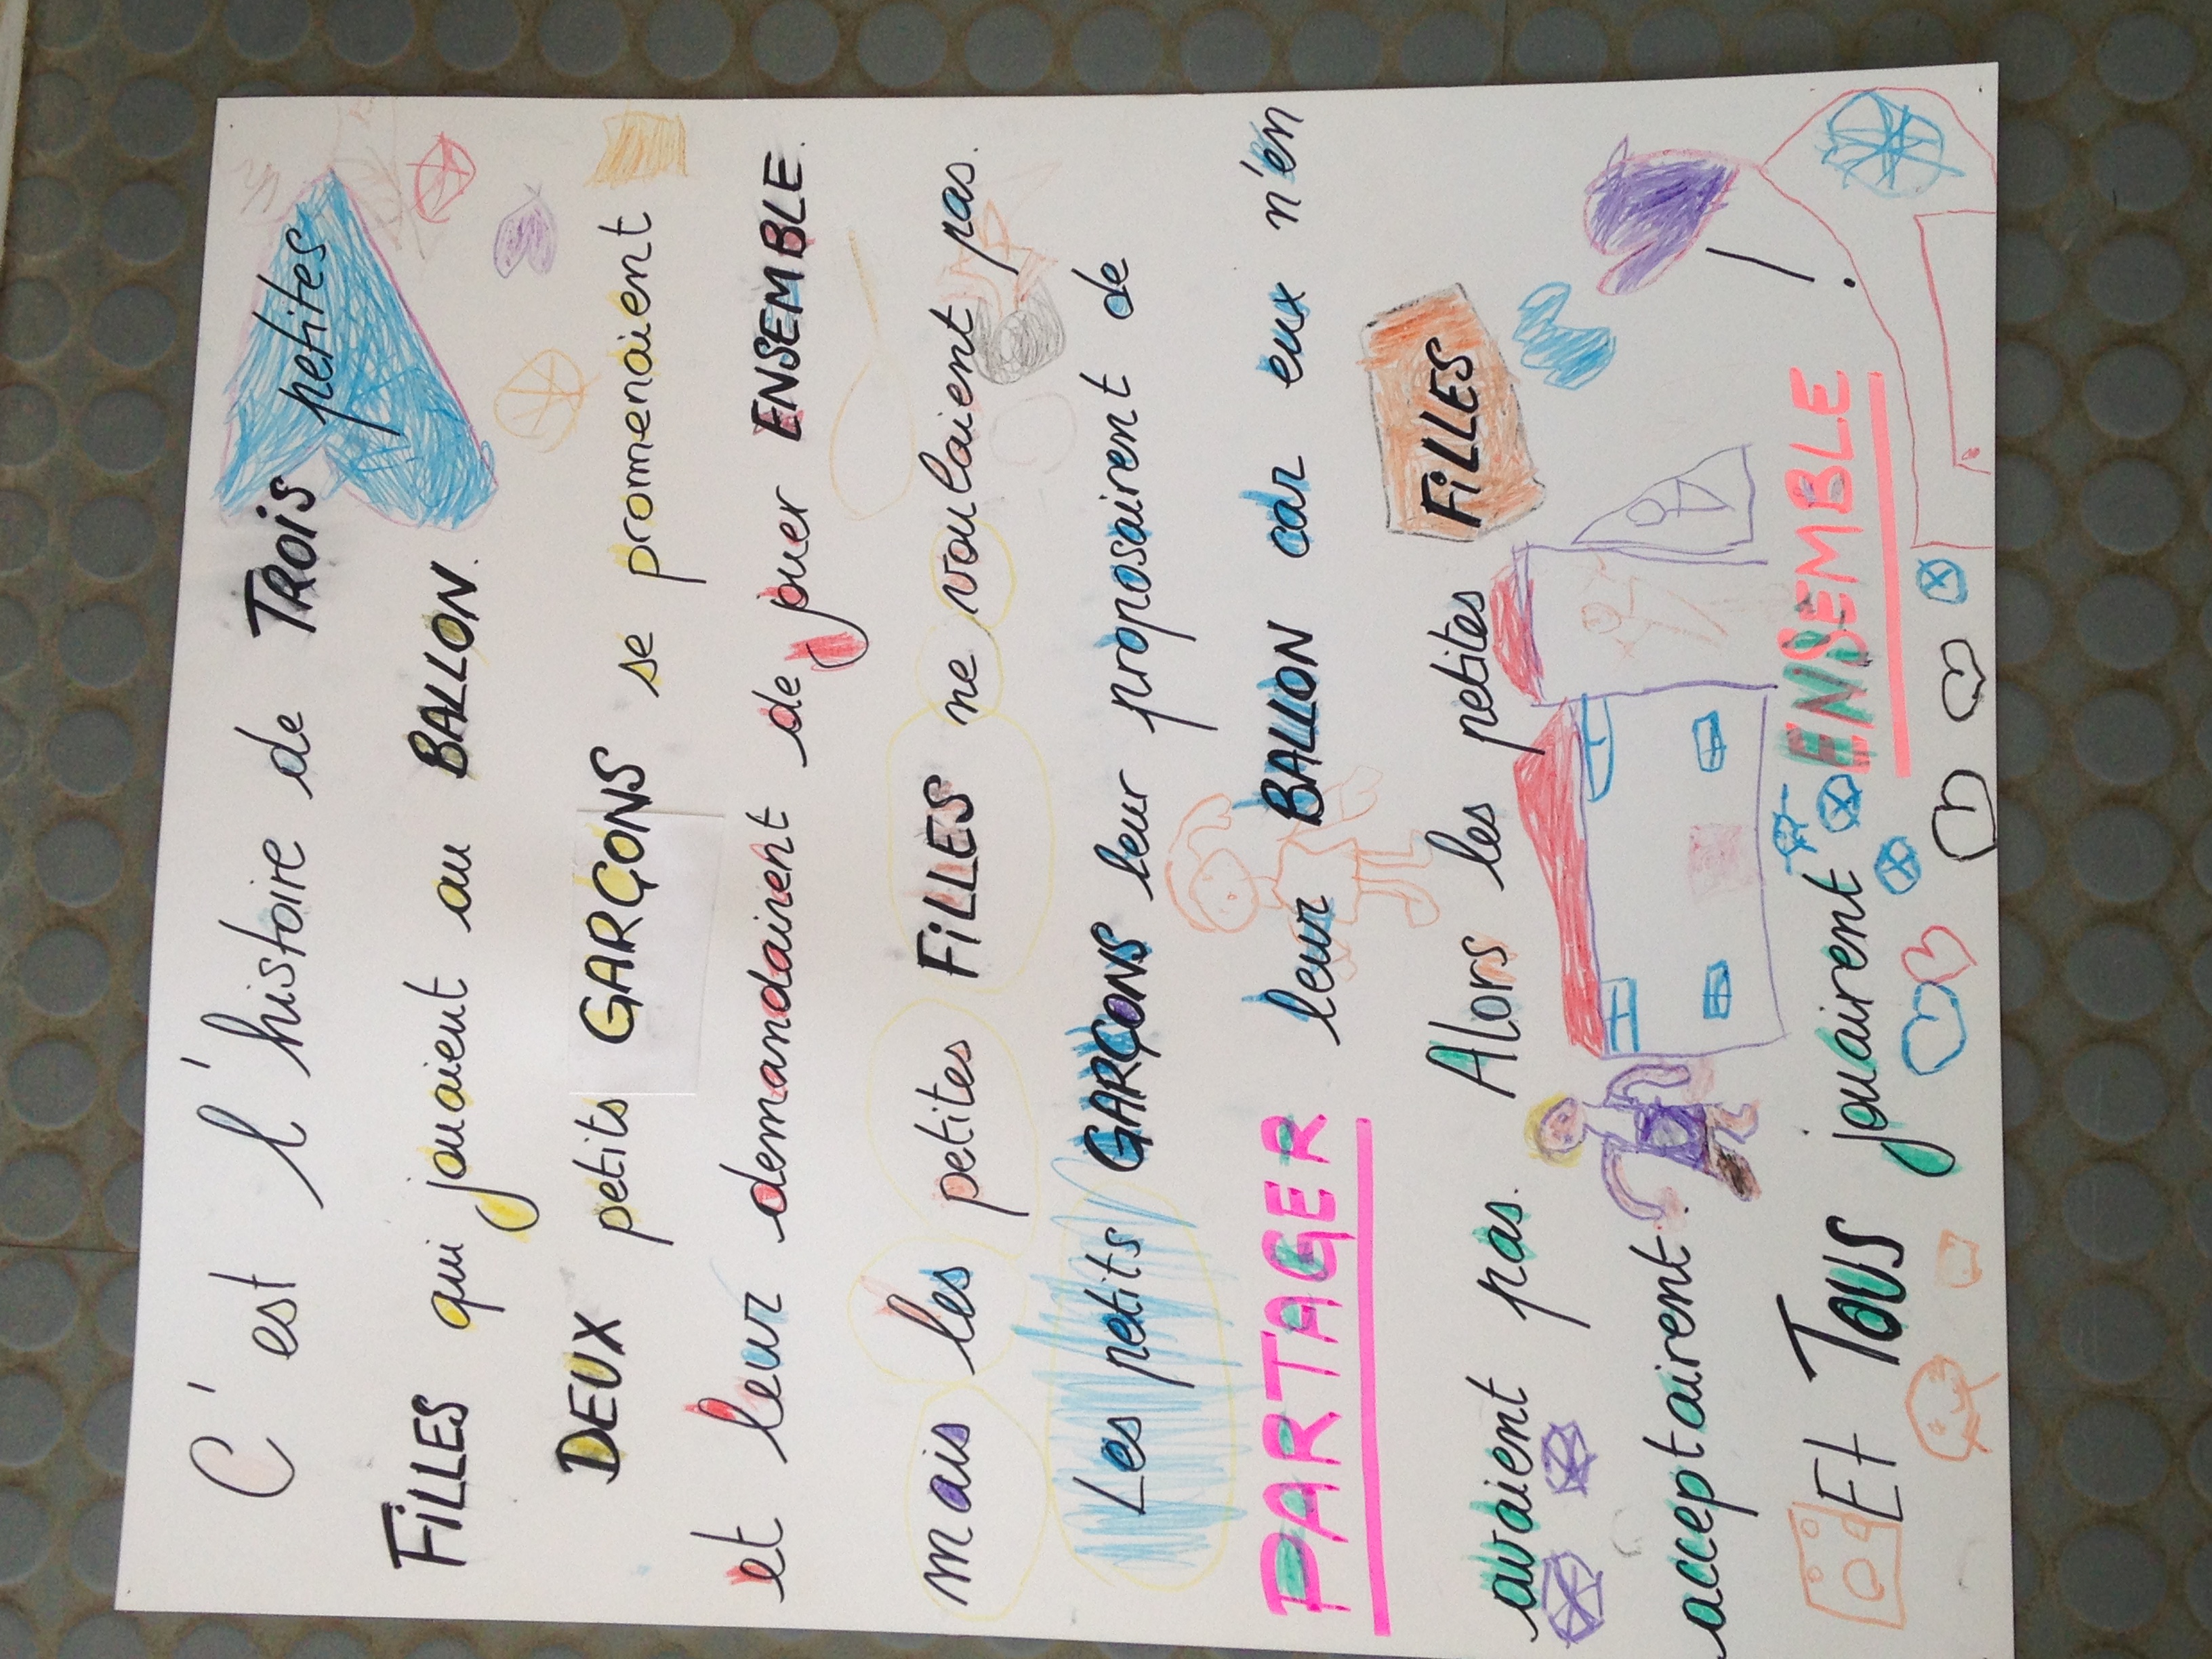 C'est l'histoire de TROIS petites
FiLLES qui jouaient au BALLON.
DEUX petits GARÇONS se promenaient
et leur demandairent de jouer ENSEMBLE.
mais les petites FiLLES ne voulaient pas.
Les petits GARÇONS leur proposairent de
PARTAGER leur BALLON car eux n'en
avaient pas. Alors les petites FiLLES
acceptairent.
Et TOUS jouairent ENSEMBLE !